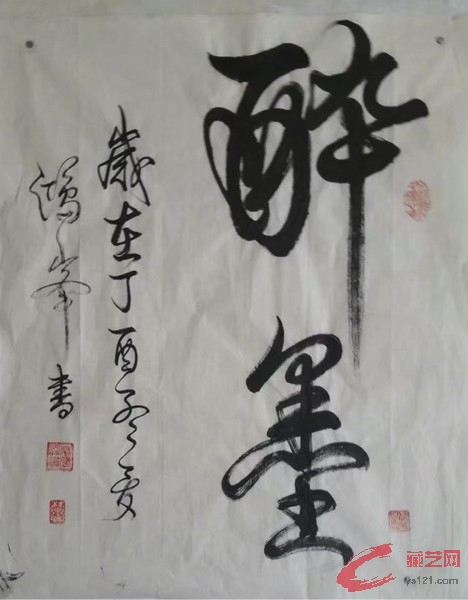 醉墨
歲在丁酉冬安
鴻峰書
藏艺网
cs121.com